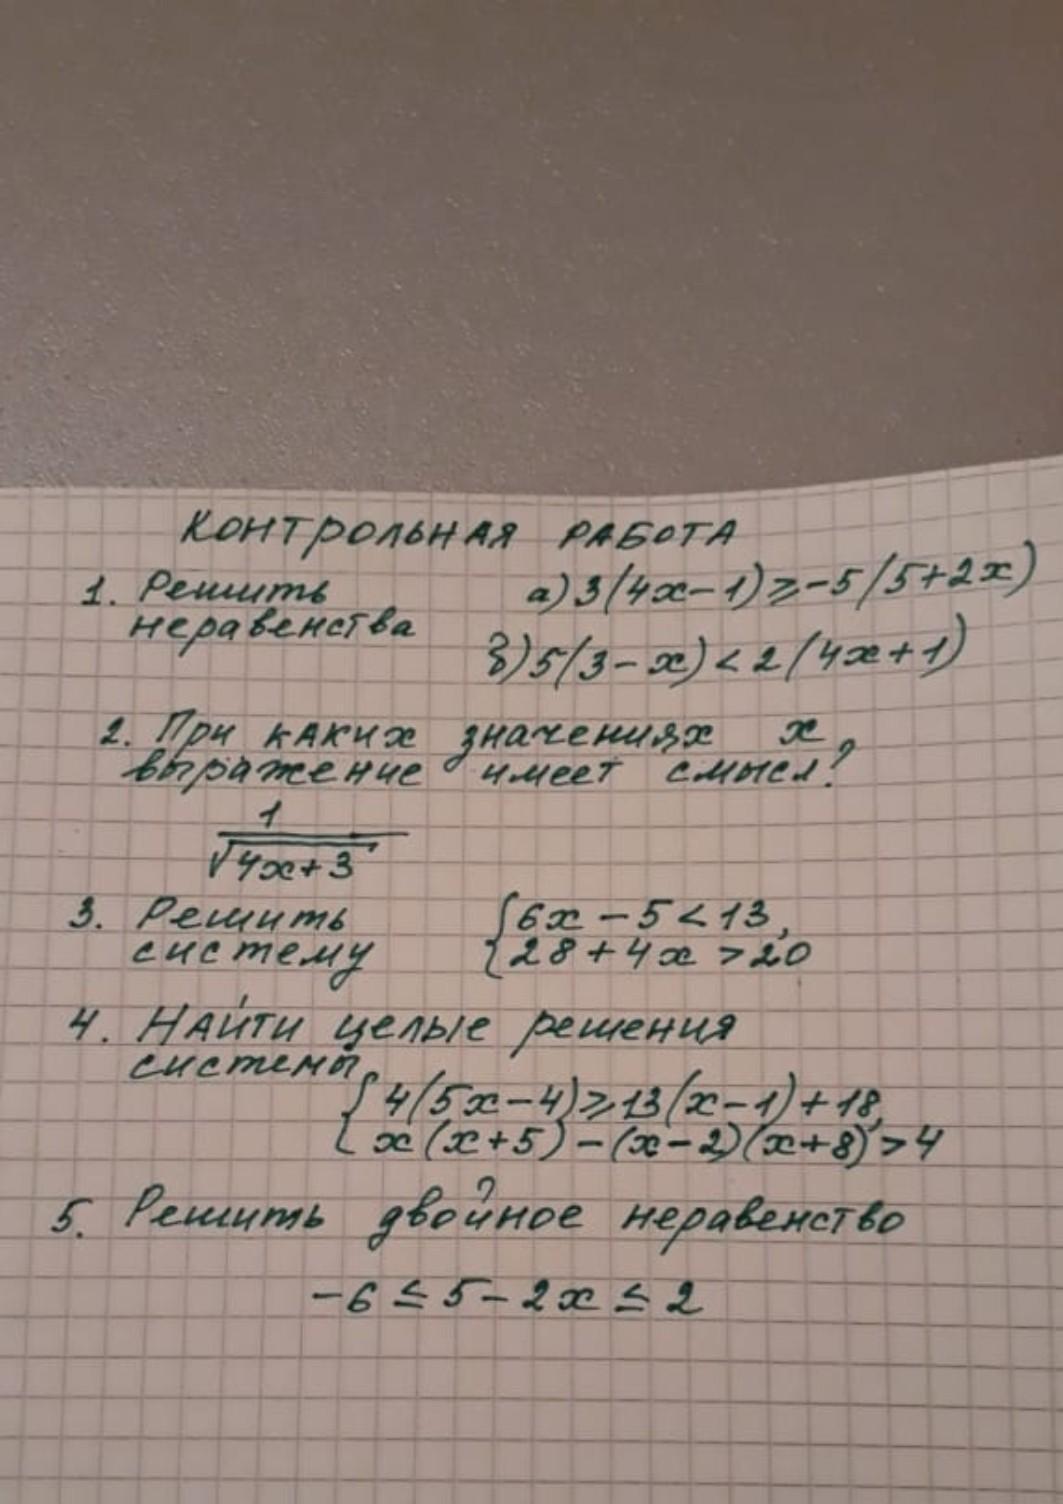 КОНТРОЛЬНАЯ РАБОТА
1. Решить а) 3(4x-1)≥-5(5+2x)
неравенства
б) 5(3-x)<2(4x+1)
2. При каких значениях x
выражение имеет смысл?
1
√4x+3
3. Решить {6x-5<13,
систему {28+4x>20
4. Найти целые решения
системы
{4(5x-4)≥13(x-1)+18,
{x(x+5)-(x-2)(x+8)>4
5. Решить двойное неравенство
-6≤5-2x≤2